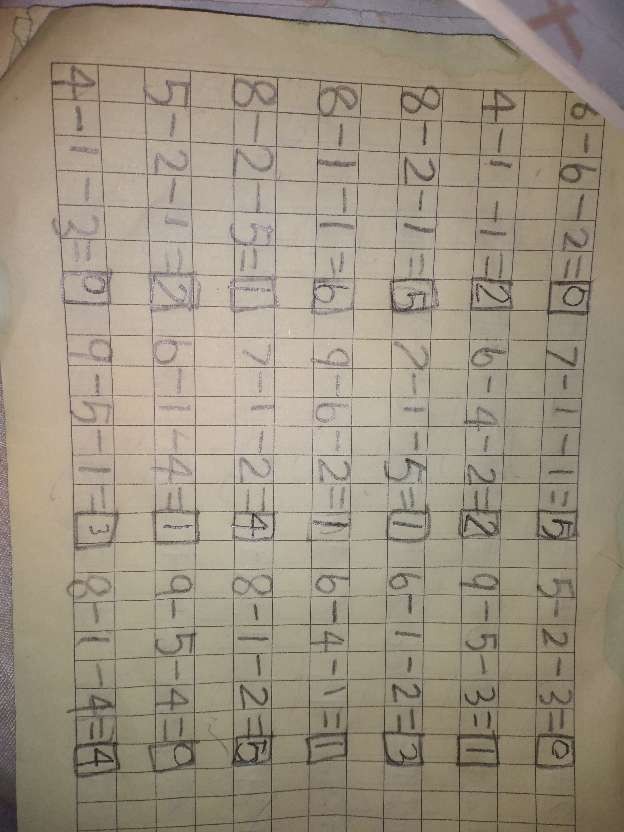 8-6-2=0 7-1-1=5 5-2-3=0
4-1-1=2 6-4-2=2 9-5-3=1
8-2-1=5 7-1-5=1 6-1-2=3
8-1-1=6 9-6-2=1 6-4-1=1
8-2-5=1 7-1-2=4 8-1-2=5
5-2-1=2 6-1-4=1 9-5-4=0
4-1-3=0 9-5-1=3 8-1-4=4